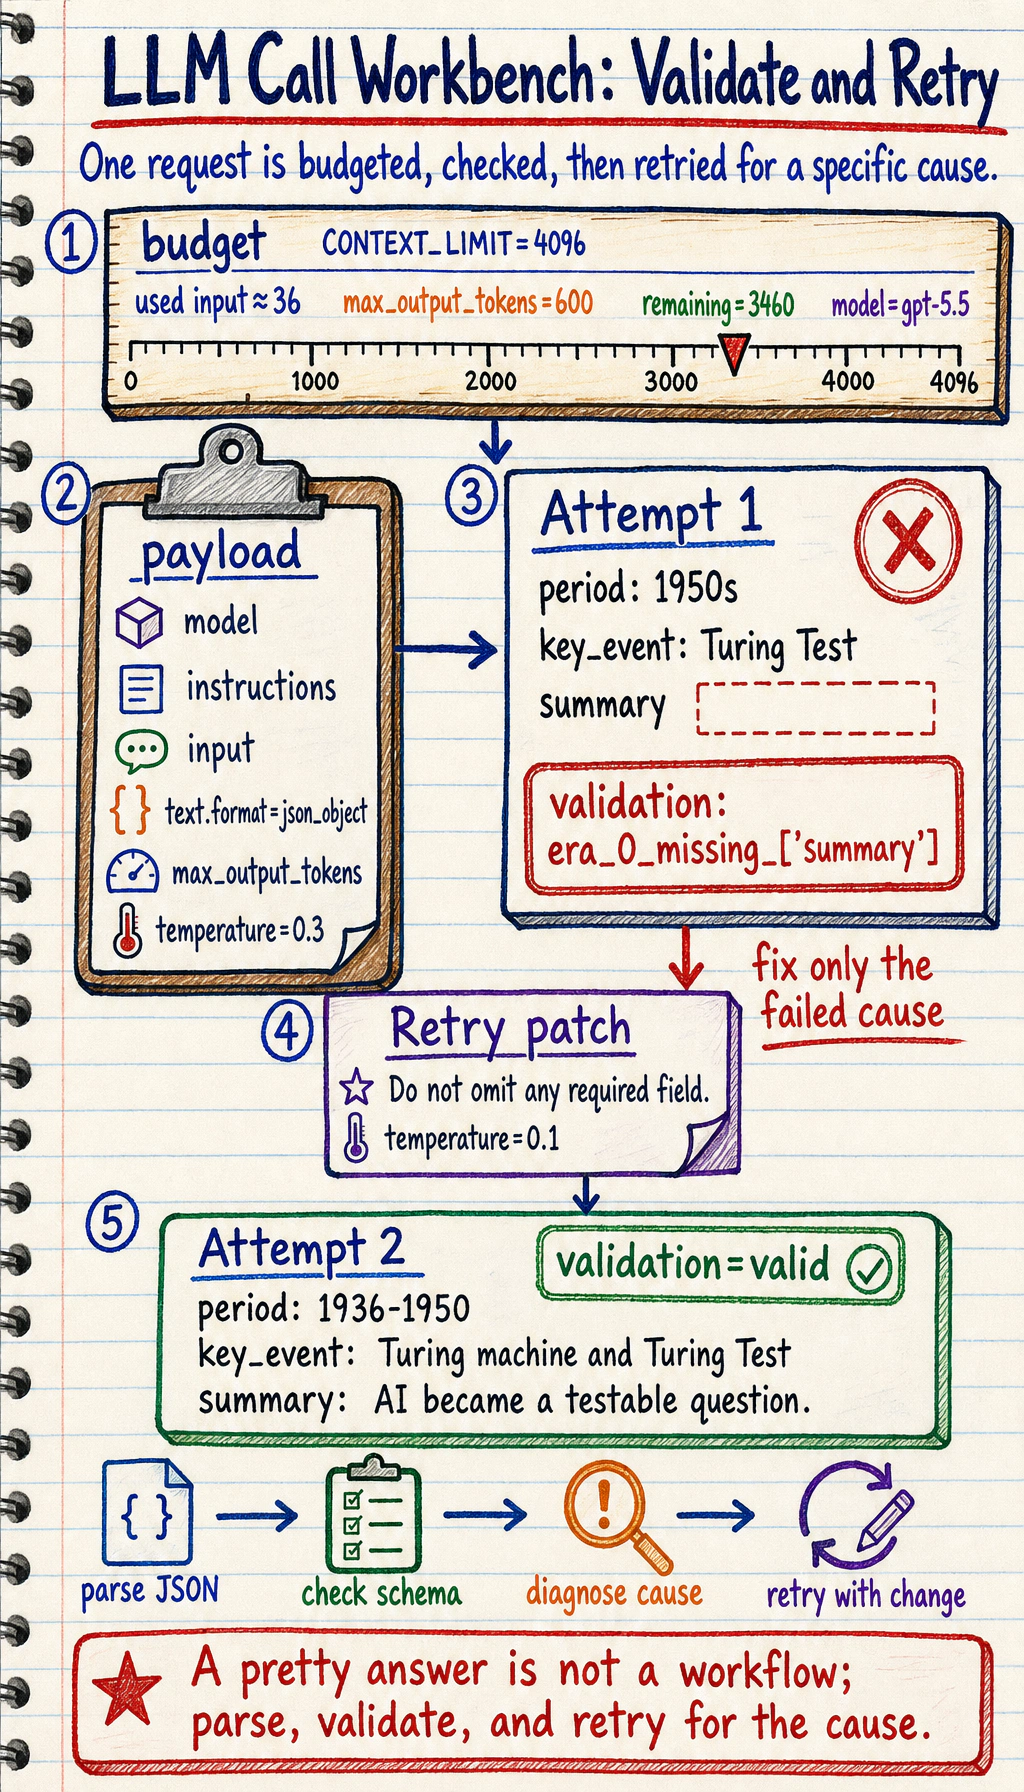 LLM Call Workbench: Validate and Retry
One request is budgeted, checked, then retried for a specific cause.
1
budget
CONTEXT_LIMIT=4096
used input≈36
max_output_tokens=600
remaining=3460
model=gpt-5.5
0 1000 2000 3000 4000 4096
2
payload
model
instructions
input
{} text.format=json_object
max_output_tokens
temperature=0.3
3
Attempt 1
period: 1950s
key_event: Turing Test
summary
validation:
era_0_missing_['summary']
fix only the
failed cause
4
Retry patch
Do not omit any required field.
temperature=0.1
5
Attempt 2
validation=valid
period: 1936-1950
key_event: Turing machine and Turing Test
summary: AI became a testable question.
{ }
!
parse JSON
check schema
diagnose cause
retry with change
A pretty answer is not a workflow;
parse, validate, and retry for the cause.